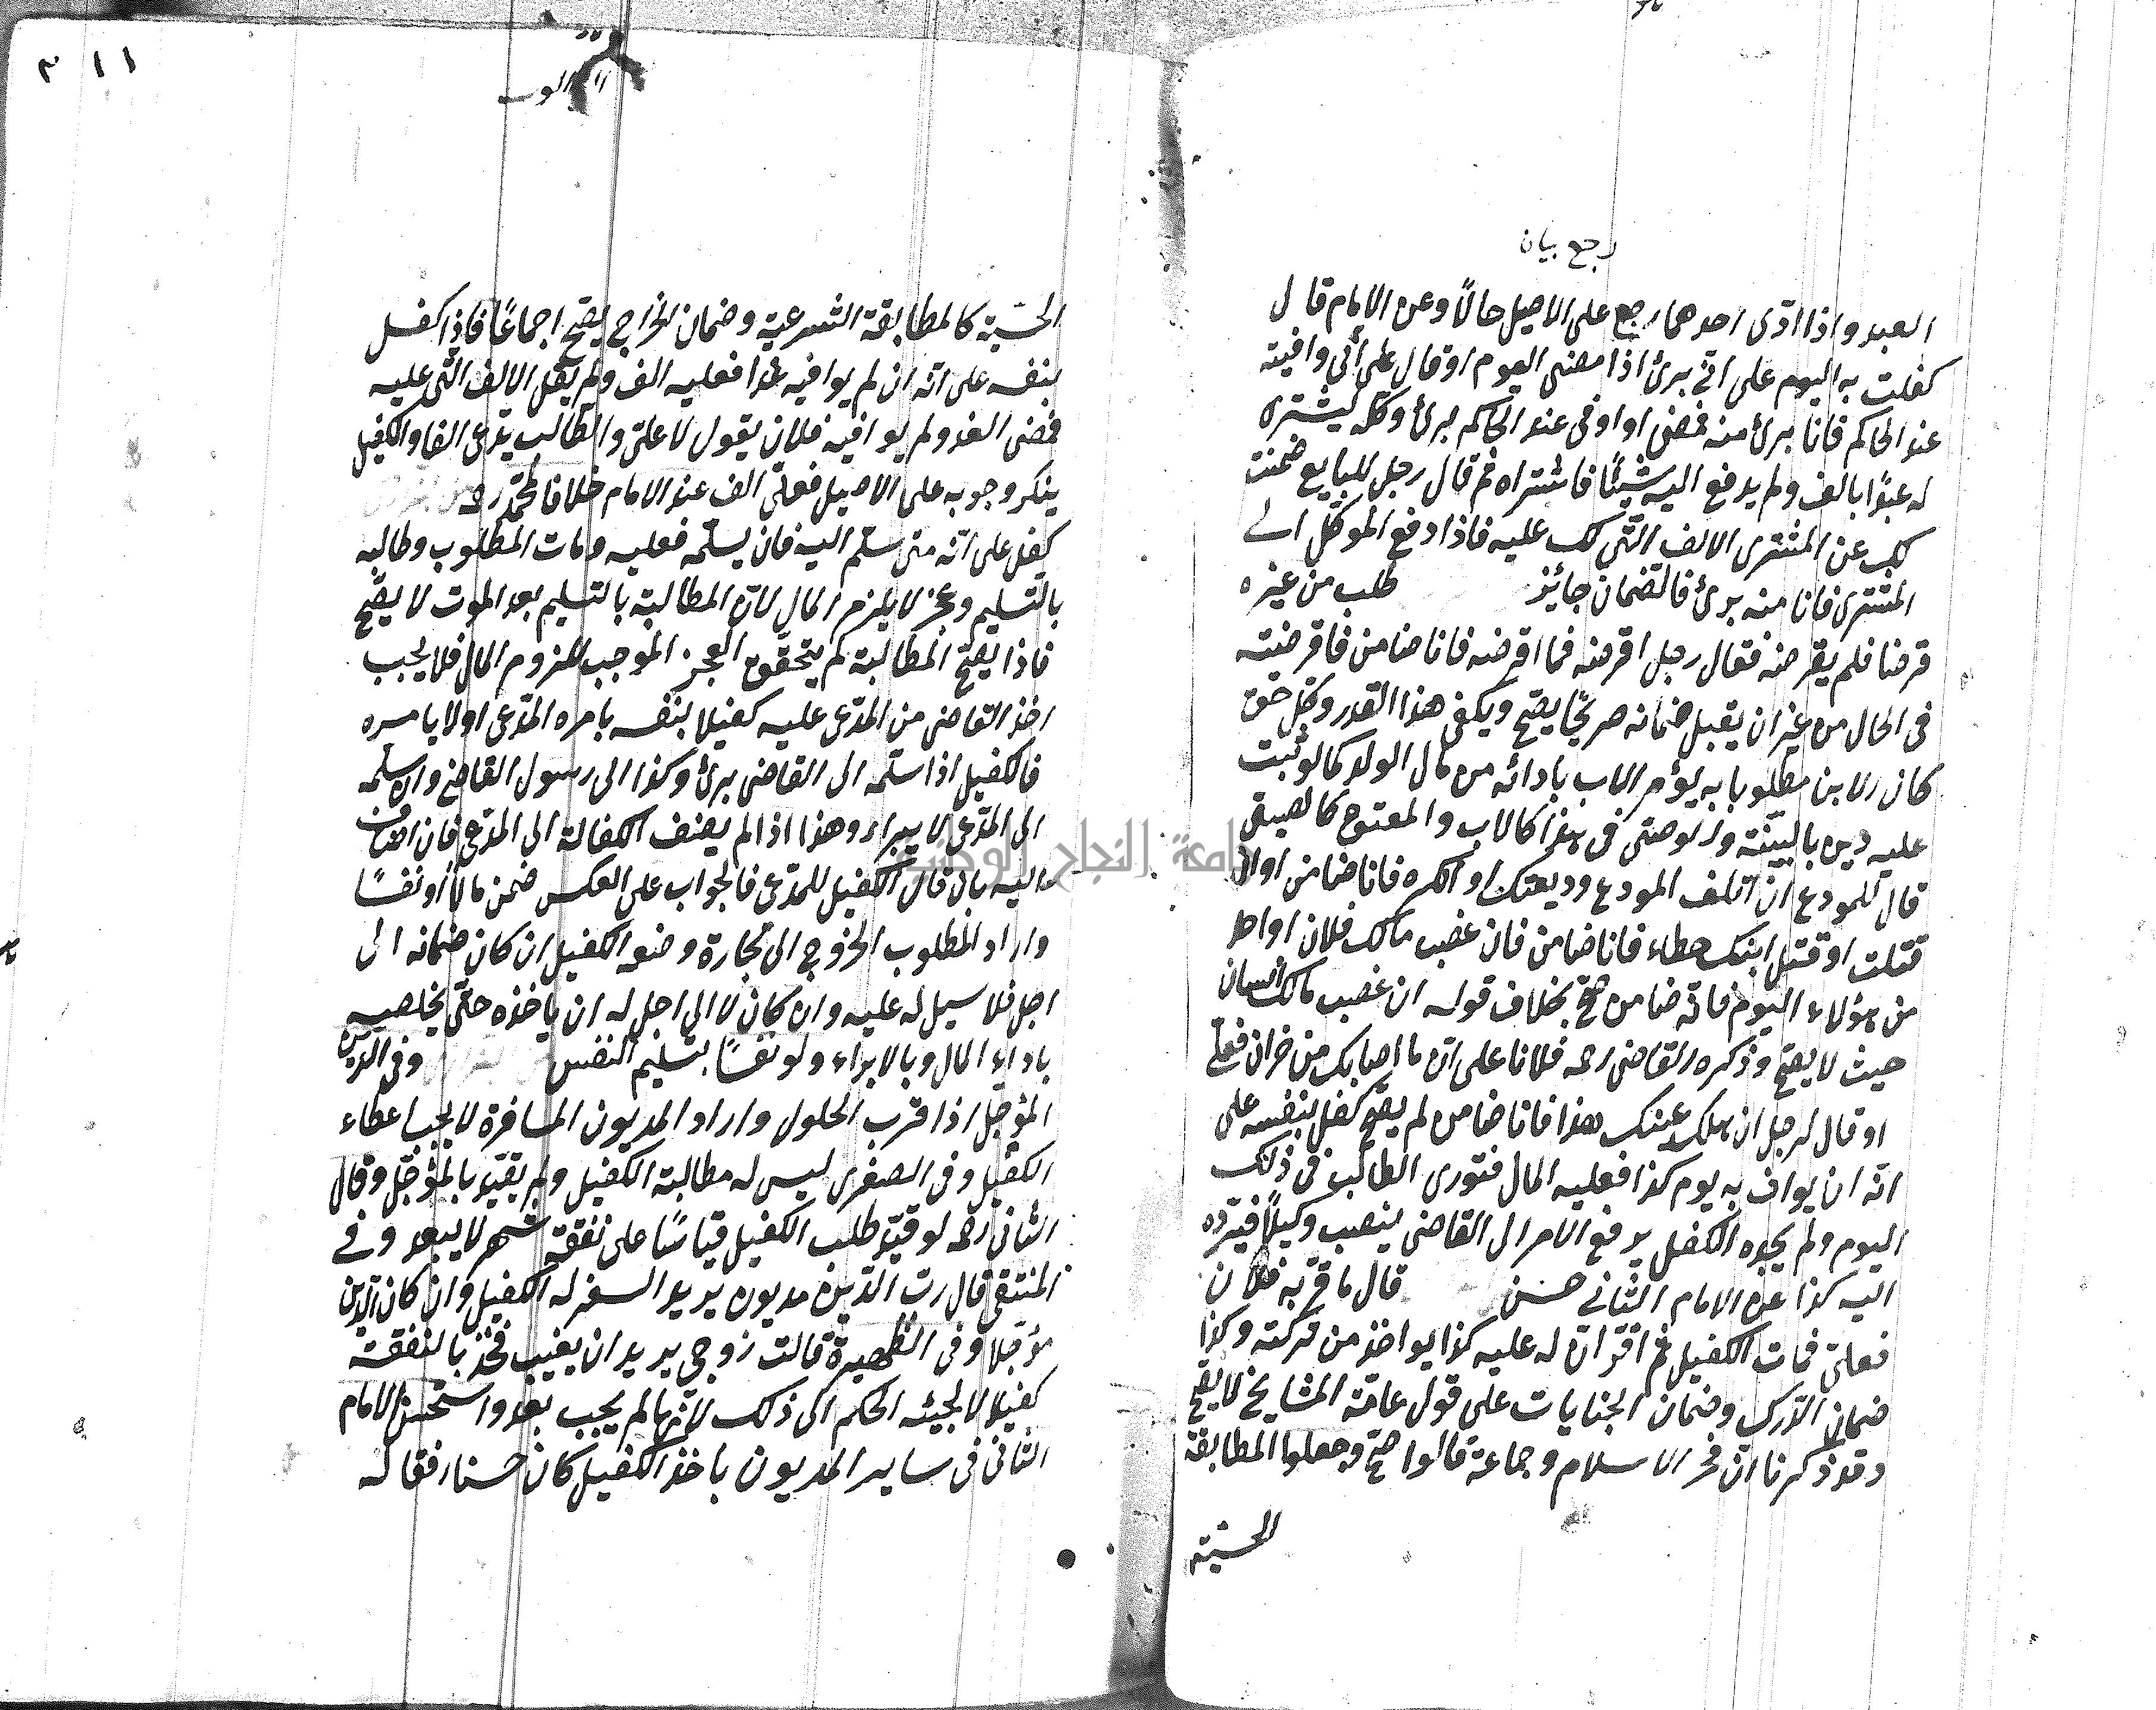 رجع بيان
العبد واذا ادّى احدهما رجع على الاصيل حالاً وعن الامام قال
كفلت به اليوم على انّي برئ اذا مضى اليوم او قال على أنّي وافيته
عند الحاكم فانا برئ منه فمضى او اوفى عند الحاكم برئ وكله ليشترى
له عبدًا بالف ولم يدفع اليه شيئًا فاشتراه ثم قال رجل للبايع ضمنت
لك عن المشترى الالف الّتى لك عليه فاذا دفع الموكل الى
المشترى فانا منه برئ فالضمان جائز طلب من غيره
قرضا فلم يقرضه فقال رجل اقرضه فما اقرضه فانا ضامن فاقرضته
فى الحال من غير ان يقبل ضمانه صريحًا يصّح ويكفى هذا القدر وكل حق
كان الابن مطلوبا به يؤمر الاب بادائه من مال الولد كما لو ثبت
عليه دين بالبيّنة والوصىّ فى هذا كالاب والمعتوه كالصبىّ
قال للمودع ان اتلف المودع وديعتك او انكره فانا ضامن او ان
قتلت او قتل ابنك خطاء فانا ضامن فان غصب مالك فلان او احد
من هؤلاء اليوم فانّه ضامن صّح بخلاف قوله ان غصب مالك انسان
حيث لا يصّح وذكره القاضى رحمه فلانا على انّ ما اصابك من خسران فعلىّ
او قال لرجل ان هلك عينك هذا فانا ضامن لم يصّح كفل بنفسه على
انه ان يواف به يوم كذا فعليه المال فتورى الطالب فى ذلك
اليوم ولم يجده الكفيل يرفع الامر الى القاضى ينصب وكيلاً فيرّده
اليه كذا عن الامام الثانى حسن قال ما اقرّ به فلان
فعلىّ فمات الكفيل ثم اقرّ انّ له عليه كذا يواخذ من تركته وكذا
ضمان الدّرك وضمان الجنايات على قول عامّة المشايخ لا يصّح
وقد ذكرنا انّ فخر الاسلام وجماعة قالوا صّح وجعلوا المطالبة
الحسّية
٣١١
الحسّية كالمطالبة الشرعيّة وضمان الخراج يصّح اجماعًا فاذا كفل
بنفسه على انّه ان لم يوافيه غدا فعليه الف ولم يقل الالف الّتى عليه
فمضى الغد ولم يوافيه فلان يقول لا علىّ والطّالب يدّعى الفا والكفيل
ينكر وجوبه على الاصيل فعلىّ الف عند الامام خلافا لمحمّد رحمه
كفل على انّه متى سلّم اليه فان يسلّمه فعليه ومات المطلوب وطالبه
بالتسليم وعجز لا يلزم المال لانّ المطالبة بالتسليم بعد الموت لا يصّح
فاذا يصّح المطالبة لم يتحقّق العجز الموجب للزوم المال فلا يجب
اخذ القاضى من المدّعى عليه كفيلا بنفسه بامره المدّعى او لا بامره
فالكفيل اذا سلّمه الى القاضى برئ وكذا الى رسول القاضى وان سلّمه
الى المدّعى لا يبراء وهذا اذا لم يضف الكفالة الى المدّعى فان اضاف
اليه بان قال الكفيل للمدّعى فالجواب على العكس ضمن مالًا او نفسًا
واراد المطلوب الخروج الى تجارة ومنعه الكفيل ان كان ضمانه الى
اجل فلا سبيل له عليه وان كان لا الى اجل له ان ياخذه حتّى يخلصه
باداء المال وبالابراء ولو نفسًا بتسليم النفس وفى الدين
المؤجّل اذا قرب الحلول واراد المديون المسافرة لا يجب اعطاء
الكفيل وفى الصغرى ليس له مطالبة الكفيل ولم يقيّد بالمؤجّل وقال
الثانى رحمه لو قيّد طلب الكفيل قياسًا على نفقة شهر لا يبعد وفى
المنتقى قال رب الدّين مديون يريد السفر له الكفيل وان كان الدّين
مؤجّلا وفى الظهيرة قالت زوجى يريد ان يغيب فخذ بالنفقة
كفيلا لا يجيبه الحكم الى ذلك لانّها لم يجب بعد واستحسن الامام
الثانى فى ساير المديون باخذ الكفيل كان حسنا رفقا له
جامعة النجاح الوطنية